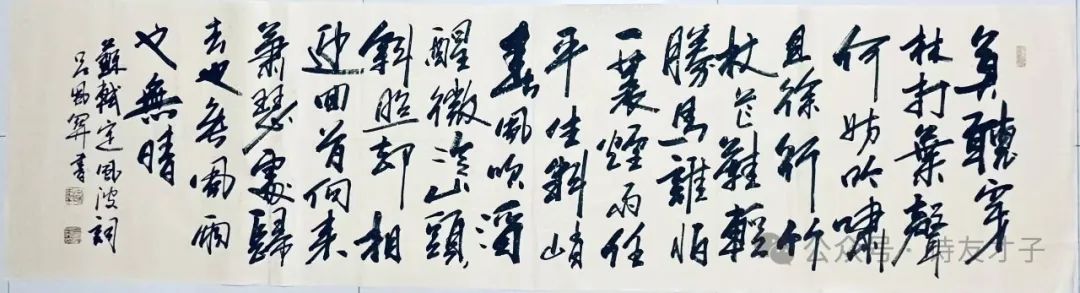 莫聽穿
林打葉聲
何妨吟嘯
且徐行竹
杖芒鞋輕
勝馬誰怕
一蓑煙雨任
平生料峭
春風吹酒
醒微冷山頭
斜照却相
迎回首向来
蕭瑟處歸
去也無風雨
也無晴
蘇軾定風波詞
書
公众号·诗友才子